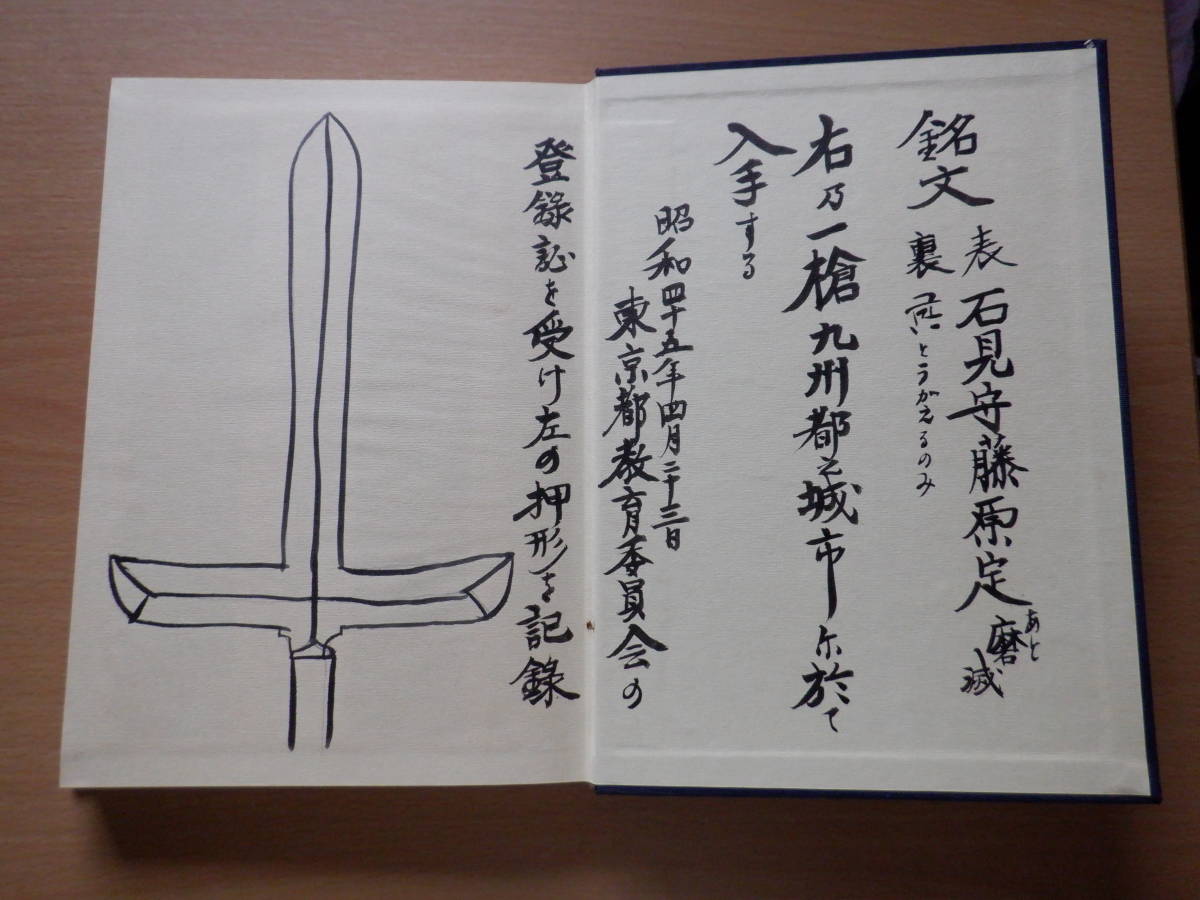 銘文
表 石見守藤原定
あと磨滅
裏 □とうかゞえるのみ
右乃一槍九州都之城市尓於て
入手する
昭和四十五年四月二十三日
東京都教育委員会の
登録証を受け左の押形を記録